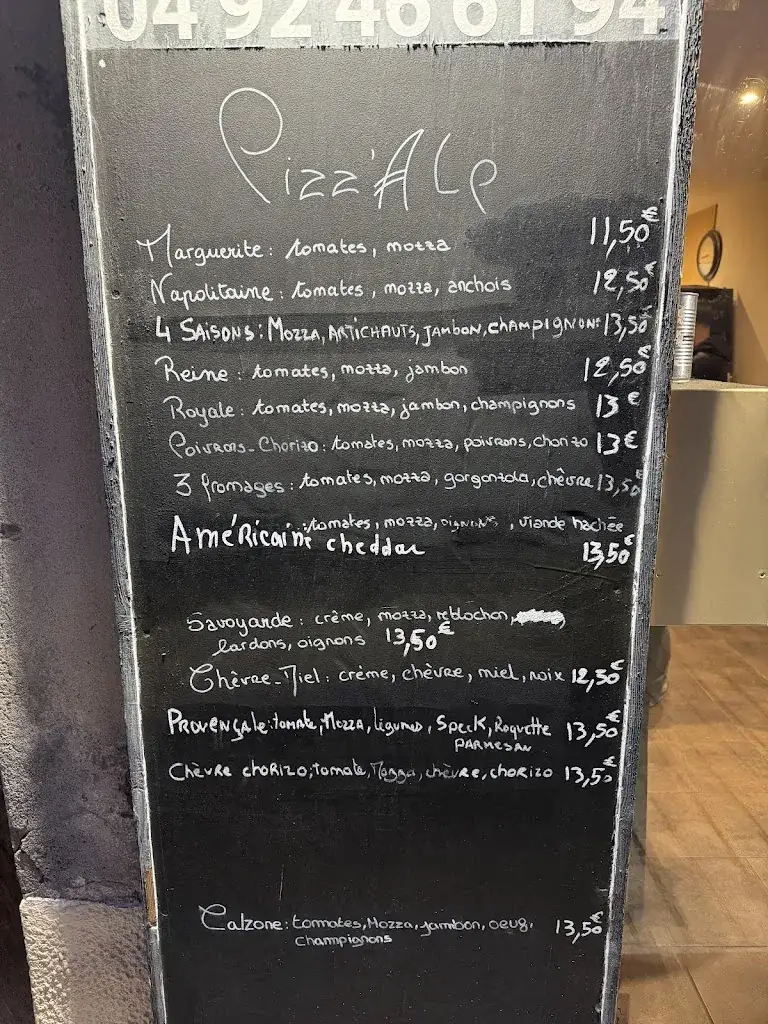 04 92 46 61 94
Pizz'Alp
Marguerite : tomates, mozza 11,50€
Napolitaine : tomates, mozza, anchois 12,50€
4 SAISONS : MOZZA, ARTICHAUTS, JAMBON, CHAMPIGNONS 13,50€
Reine : tomates, mozza, jambon 12,50€
Royale : tomates, mozza, jambon, champignons 13€
Poivrons-Chorizo : tomates, mozza, poivrons, chorizo 13€
3 fromages : tomates, mozza, gorgonzola, chèvre 13,50
: tomates, mozza, oignons, viande hachée
Américaine cheddar 13,50€
Savoyarde : crème, mozza, reblochon,
lardons, oignons 13,50€
Chèvre-Miel : crème, chèvre, miel, noix 12,50€
PROVENÇALE : tomate, MOZZA, légumes, Speck, Roquette 13,50€
PARMESAN
Chèvre chorizo ; tomate, Mozza, chèvre, chorizo 13,50€
Calzone : tommates, Mozza, jambon, oeuf, 13,50€
Champignons